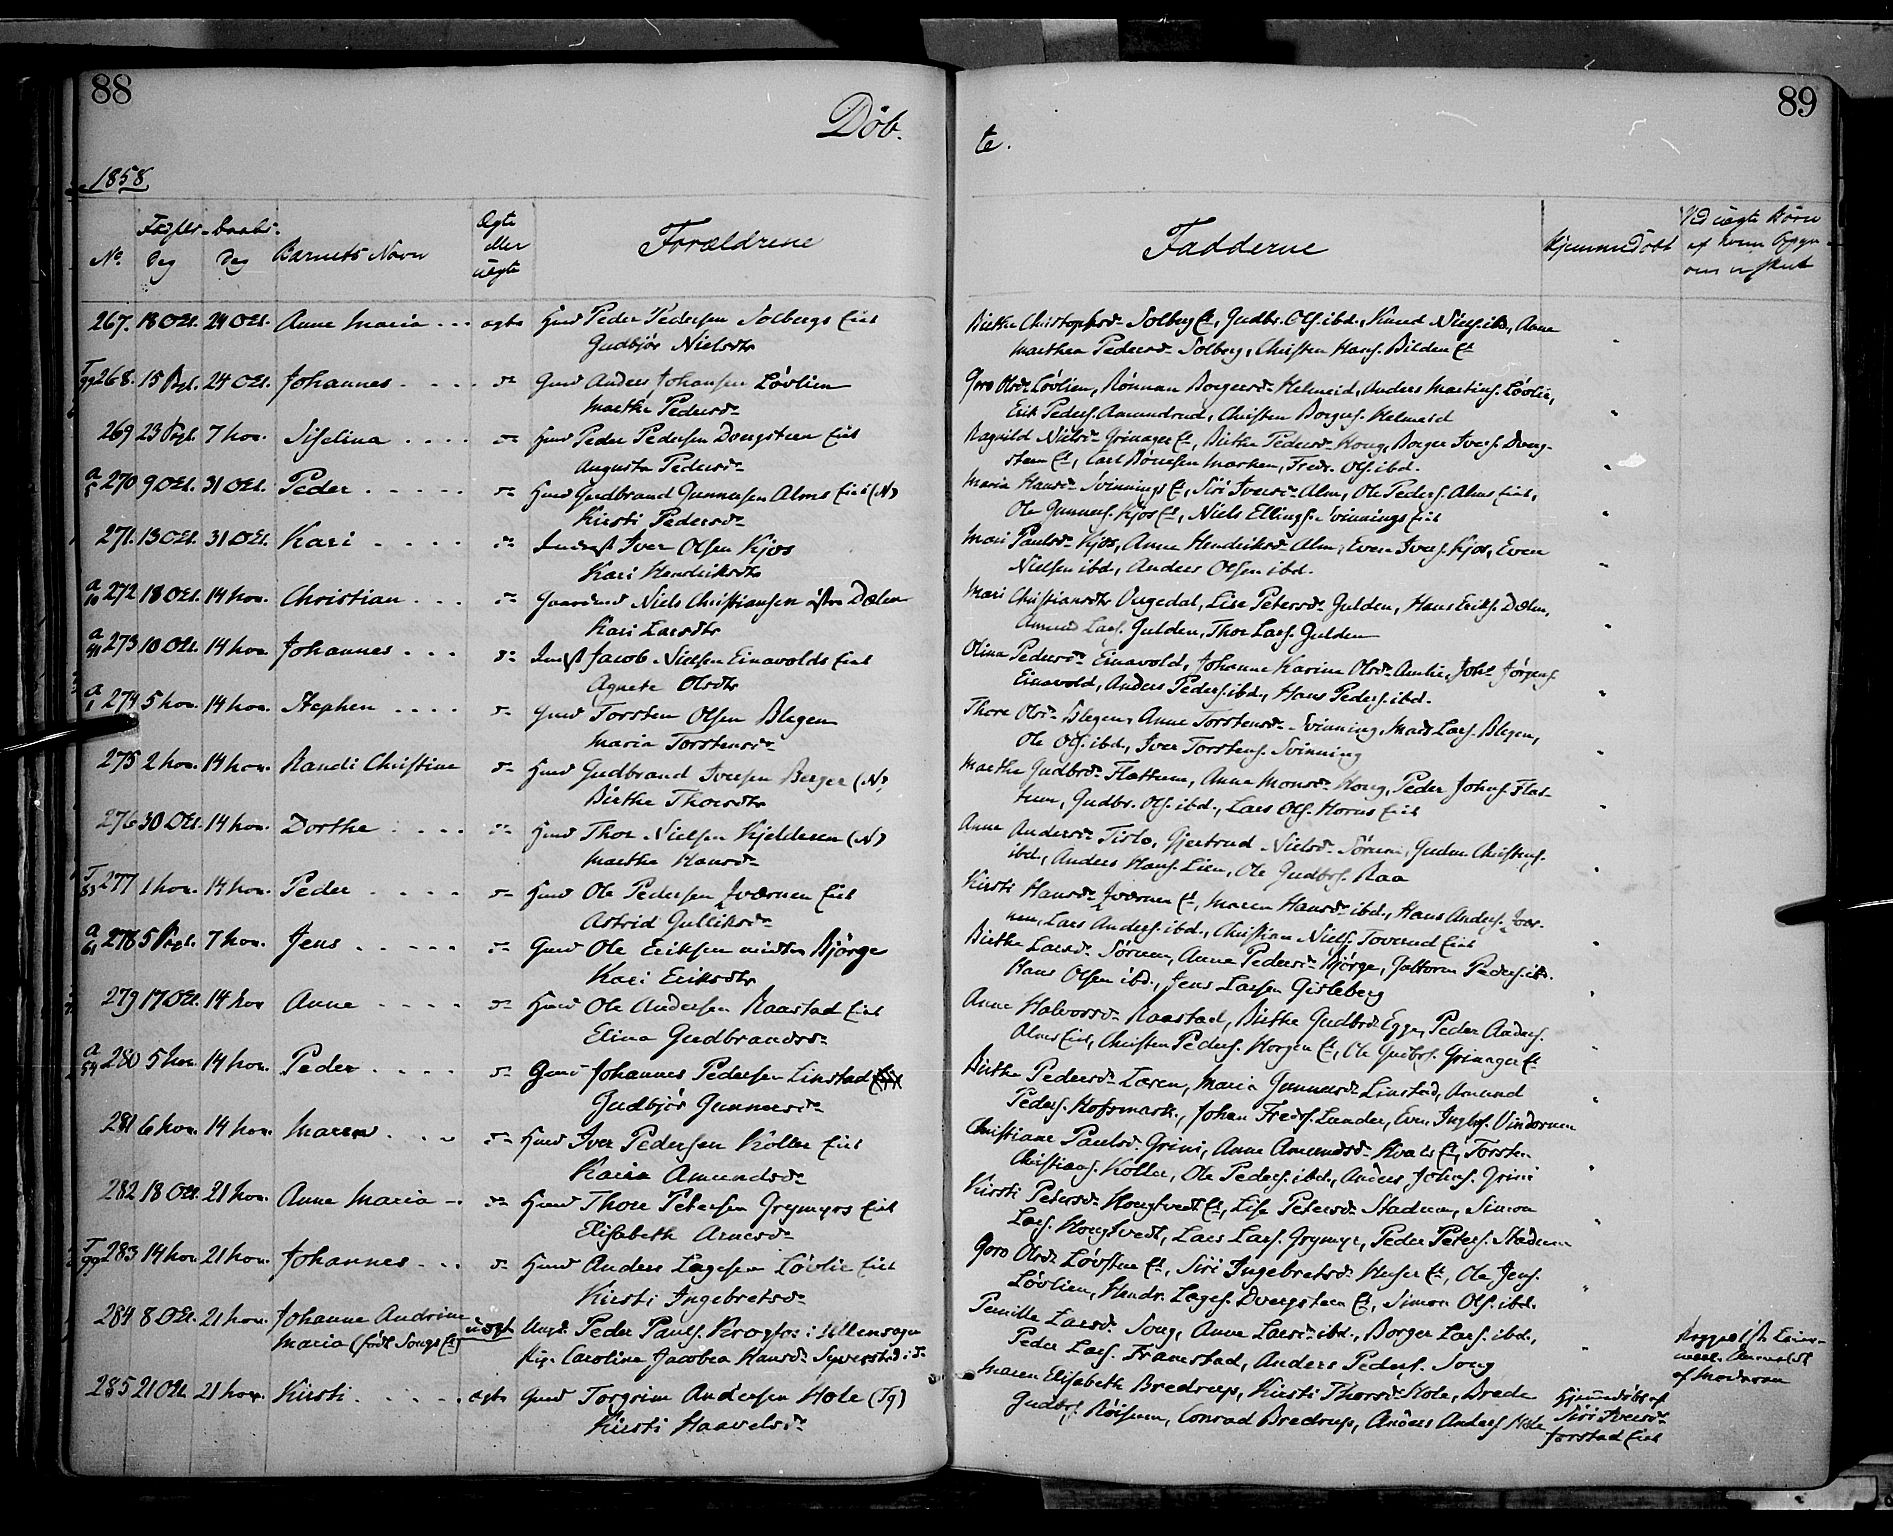 88
89
Døb.
te.
1858.
No.
dag
dag
Barnets Navn
Ægte
eller
uægte
Forældrene
Fadderne
Hjemmedøbt
Ved uægte Børn
af hvem Opgn
267. 18 Oct. 24 Oct. Anne Maria ægte Hmd Peder Pedersen Solbergs Eiet
Gudbjør Nielsdtr
Birthe Christophsd. Solberg Et, Gudbr. Ols. ibd., Knud Niels. ibd., Anne
Marthea Pedersd. Solberg, Christen Hans. Bilden Et
268. 24 Oct. Johannes Gmd Anders Johansen Løvlien
Marthe Pedersd.
Goro Olsd. Løvlien, Rønnau Borgersd. Helmeid, Anders Martins. Løvlie,
Erik Peders. Amundrud, Christen Borgers. Helmeid
269 7 Nov. Sifelina Hmd Peder Pedersen Dvergsteen Eiet
Augusta Pedersd.
Ragnild Nielsd. Grinager Et, Birthe Pedersd. Houg, Borger Ivers. Dverg-
steen Et, Carl Bønesen Marken, Fredr. Ols. ibd.
270 9 Oct. 31 Oct. Peder Hmd Gudbrand Gunnersen Alms Eiet (N)
Kirsti Pedersd.
Maria Hansd. Svinnings Et, Siri Iversd. Alm, Ole Peders. Alms Eiet,
Ole Gunners. Kjos Et, Niels Ellings. Svinnings Eiet
271. 13 Oct. 31 Oct. Kari Inderst Iver Olsen Kjos
Kari Hendriksdtr
Mari Paulsd. Kjos, Anne Hendriksd. Alm, Even Ivers. Kjos, Even
Nielsen ibd., Anders Olsen ibd.
272 18 Oct. 14 Nov. Christian Gaardmd Niels Christiansen østre Dælen
Kari Larsdtr
Mari Christiansdtr Ungedal, Lise Petersd. Gulden, Hans Eriks. Dælen,
Amund Lars. Gulden, Thor Lars. Gulden
273 10 Oct. 14 Nov Johannes Indst Jacob Nielsen Einavolds Eiet
Agnete Olsdtr
Olina Pedersd. Einavold, Johanne Karine Olsd. Amlie, Johs Jørgens.
Einavold, Anders Peders. ibd., Hans Peders. ibd.
274 5 Nov. 14 Nov. Stephen Gmd Torsten Olsen Blegen
Maria Torstensd.
Thore Olsd. Blegen, Anne Torstensd. Svinning, Mads Lars. Blegen,
Ole Ols. ibd., Iver Torstens. Svinning
275 2 Nov. 14 Nov. Randi Christine Hmd Gudbrand Iversen Berger (N)
Birthe Thorsdtr
Marthe Gudbrsd. Flattum, Anne Monsd. Houg, Peder Johns. Flat-
tum, Gudbr. Ols. ibd., Lars Ols. Horns Eiet
276 30 Oct. 14 Nov. Dorthe Hmd Thor Nielsen Kjelderen (N)
Marthe Hansd.
Anne Andersd. Tislo, Gjertrud Nielsd. Sørum, Gudm Christens.
ibd., Anders Hans. Lien, Ole Gudbrs. Raa
277 1 Nov. 14 Nov. Peder Hmd Ole Pedersen Jværnen Eiet
Astrid Gulliksd.
Kirsti Hansd. Jværnen Et, Maren Hansd. ibd., Hans Anders. Jvær-
nen, Lars Anders. ibd., Christian Niels. Toverud Eiet
278 7 Nov. Jens Gmd Ole Eriksen midtre Bjørge
Kari Eriksdtr
Birthe Larsd. Sørum, Anne Pedersd. Bjørge, Guttorm Peders. ibd.
Hans Olsen ibd., Jens Larsen Gisleberg
279 17 Oct. 14 Nov Anne Hmd Ole Andersen Raastad Eiet
Elina Gudbrandsd.
Anne Halvorsd. Raastad, Birthe Gudbrsd. Egge, Peder Anders.
Alms Eiet, Christen Peders. Horgen Et, Ole Gudbrs. Grinager Et
280 5 Nov. 14 Nov. Peder Gmd Johannes Pedersen Linstad
Gudbjør Gunnersd.
Birthe Pedersd. Læren, Maria Gunnersd. Linstad, Amund
Peders. Hofsmark, Johan Fredrs. Lunder, Even Ingbrs. Vindornen
281 6 Nov. 14 Nov. Maren Hmd Iver Pedersen Koller Eiet
Karen Amundsd.
Christiane Paulsd. Grini, Anne Amundsd. Hvals Et, Torsten
Christians. Koller, Ole Peders. ibd., Anders Johns. Grini
282 18 Oct. 21 Nov. Anne Maria Hmd Thore Petersen Grymyrs Eiet
Elisabeth Arnesd.
Kirsti Petersd. Hougtvedt Et, Lise Petersd. Stadum, Simon
Lars. Hougtvedt, Lars Lars. Grymyr, Peder Peters. Stadum
283 14 Nov. 21 Nov. Johannes Hmd Anders Lagesen Løvlie Eiet
Kirsti Ingebretsd.
Goro Olsd. Løvsten Et, Siri Ingebretsd. Huser Et, Ole Jens.
Løvlien, Hendr. Lages. Dvergsteen Et, Simon Ols. ibd.
284 8 Oct. 21 Nov. Johanne Andrine uægte Ungk. Peder Pauls. Krogfos i Ullensager
Maria (født Songs Et) Pig. Caroline Jacobea Hansd. Syverstad
Pernille Larsd. Song, Anne Larsd. ibd., Borger Lars. ibd.,
Peder Lars. Framstad, Anders Peders. Song
af Moderen
285 21 Oct 21 Nov. Kirsti ægte Gmd Torgrim Andersen Hole (Tg)
Kirsti Haavelsd.
Maren Elisabeth Bredrup, Kirsti Thorsd. Hole, Brede
Gudbrs. Røisum, Conrad Bredrup, Anders Anders. Hole
Hjemmedøbt af
Siri Iversd.
Jorstad Eiet